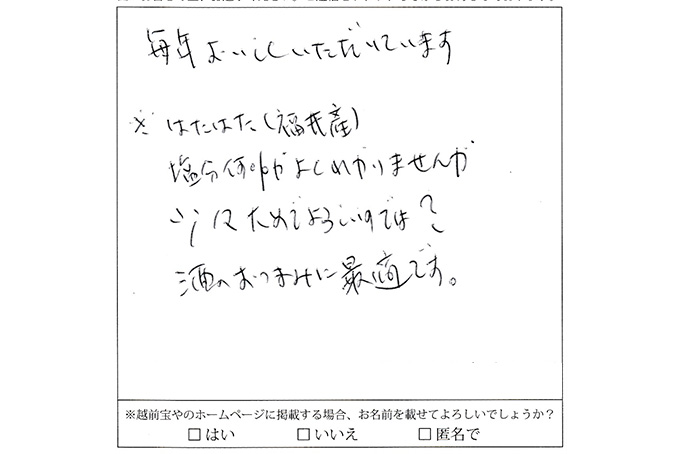 毎年おいしくいただいています
※はたはた(福井産)
塩分何%かよくわかりませんが
ひかえためでよろしいのでは?
酒のおつまみに最適です。
※越前宝やのホームページに掲載する場合、お名前を載せてよろしいでしょうか?
□はい □いいえ □匿名で